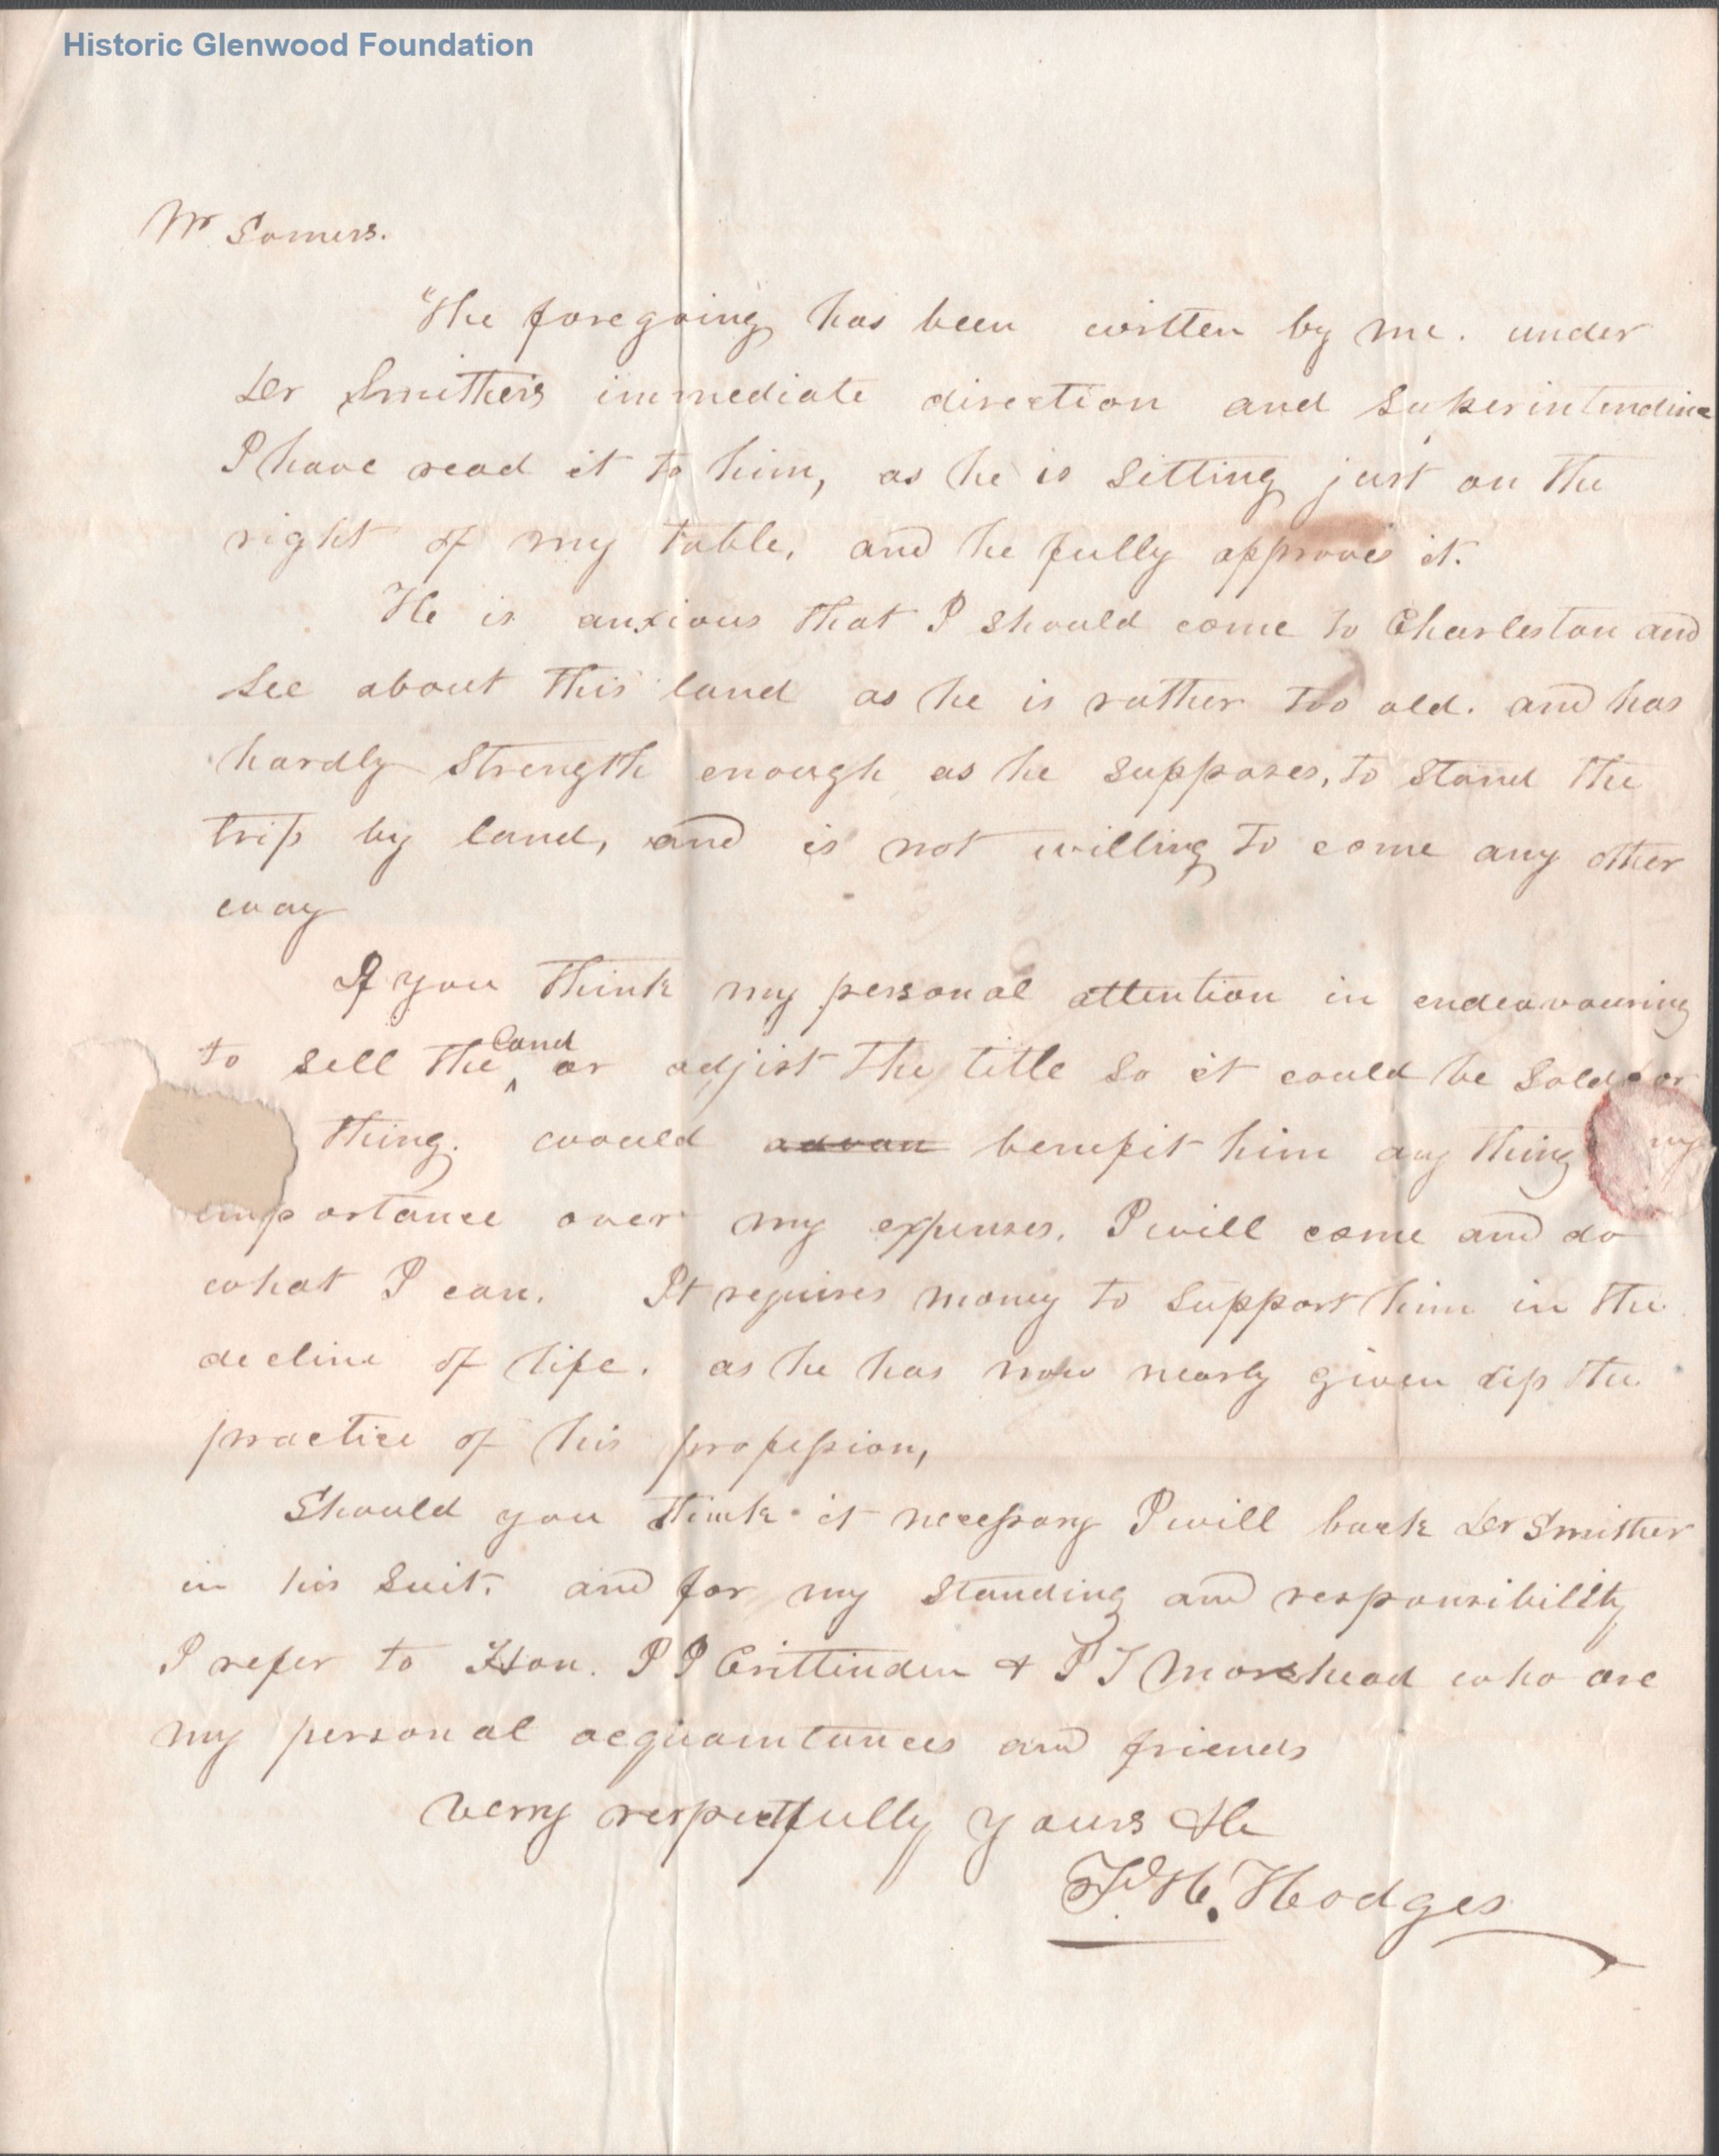 Historic Glenwood Foundation
Mr Somers.
The foregoing has been written by me. under
Dr Smithers immediate direction and superintendince
I have read it to him, as he is sitting just on the
right of my table, and he fully approves it.
He is anxious that I should come to Charleston and
see about this land as he is rather too old. and has
hardly strength enough as he supposes, to stand the
trip by land, and is not willing to come any other
way
If you think my personal attention in endeavouring
to sell the land or adjist the title so it could be sold or
thing. would advan benefit him any thing
importance over my expenses, I will come and do
what I can. It requires money to support him in the
decline of life. as he has now nearly given up the
practice of his profession,
Should you think it necessary I will back Dr Smither
in his suit. and for my standing and responsibility
I refer to Hon. J J Crittinden & J T Morehead who are
my personal acquaintances and friends
verry respectfully yours &c
H. Hodges